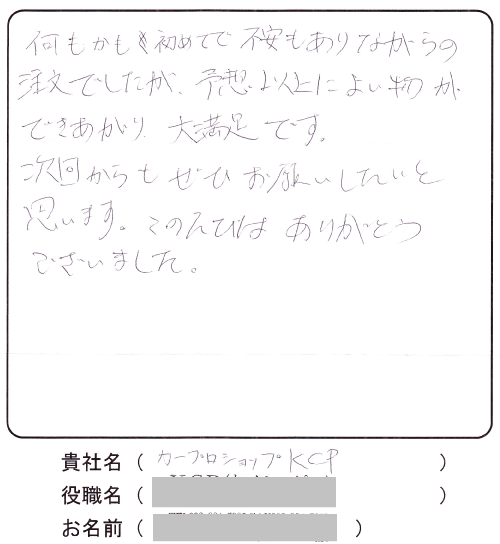 何もかも初めてで不安もありながらの
注文でしたが、予想以上によい物が
できあがり、大満足です。
次回からもぜひお願いしたいと
思います。このたびは ありがとう
ございました。
貴社名（カープロショップKCP）
役職名（　）
お名前（　）